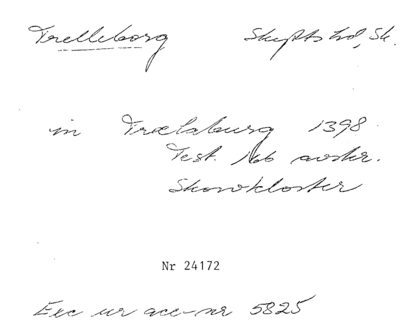 Trelleborg Skytts hd, Sk.
in Trælaburg 1398
Test. 166 avskr.
Skowkloster
Nr 24172
Exc ur acc-nr 5825